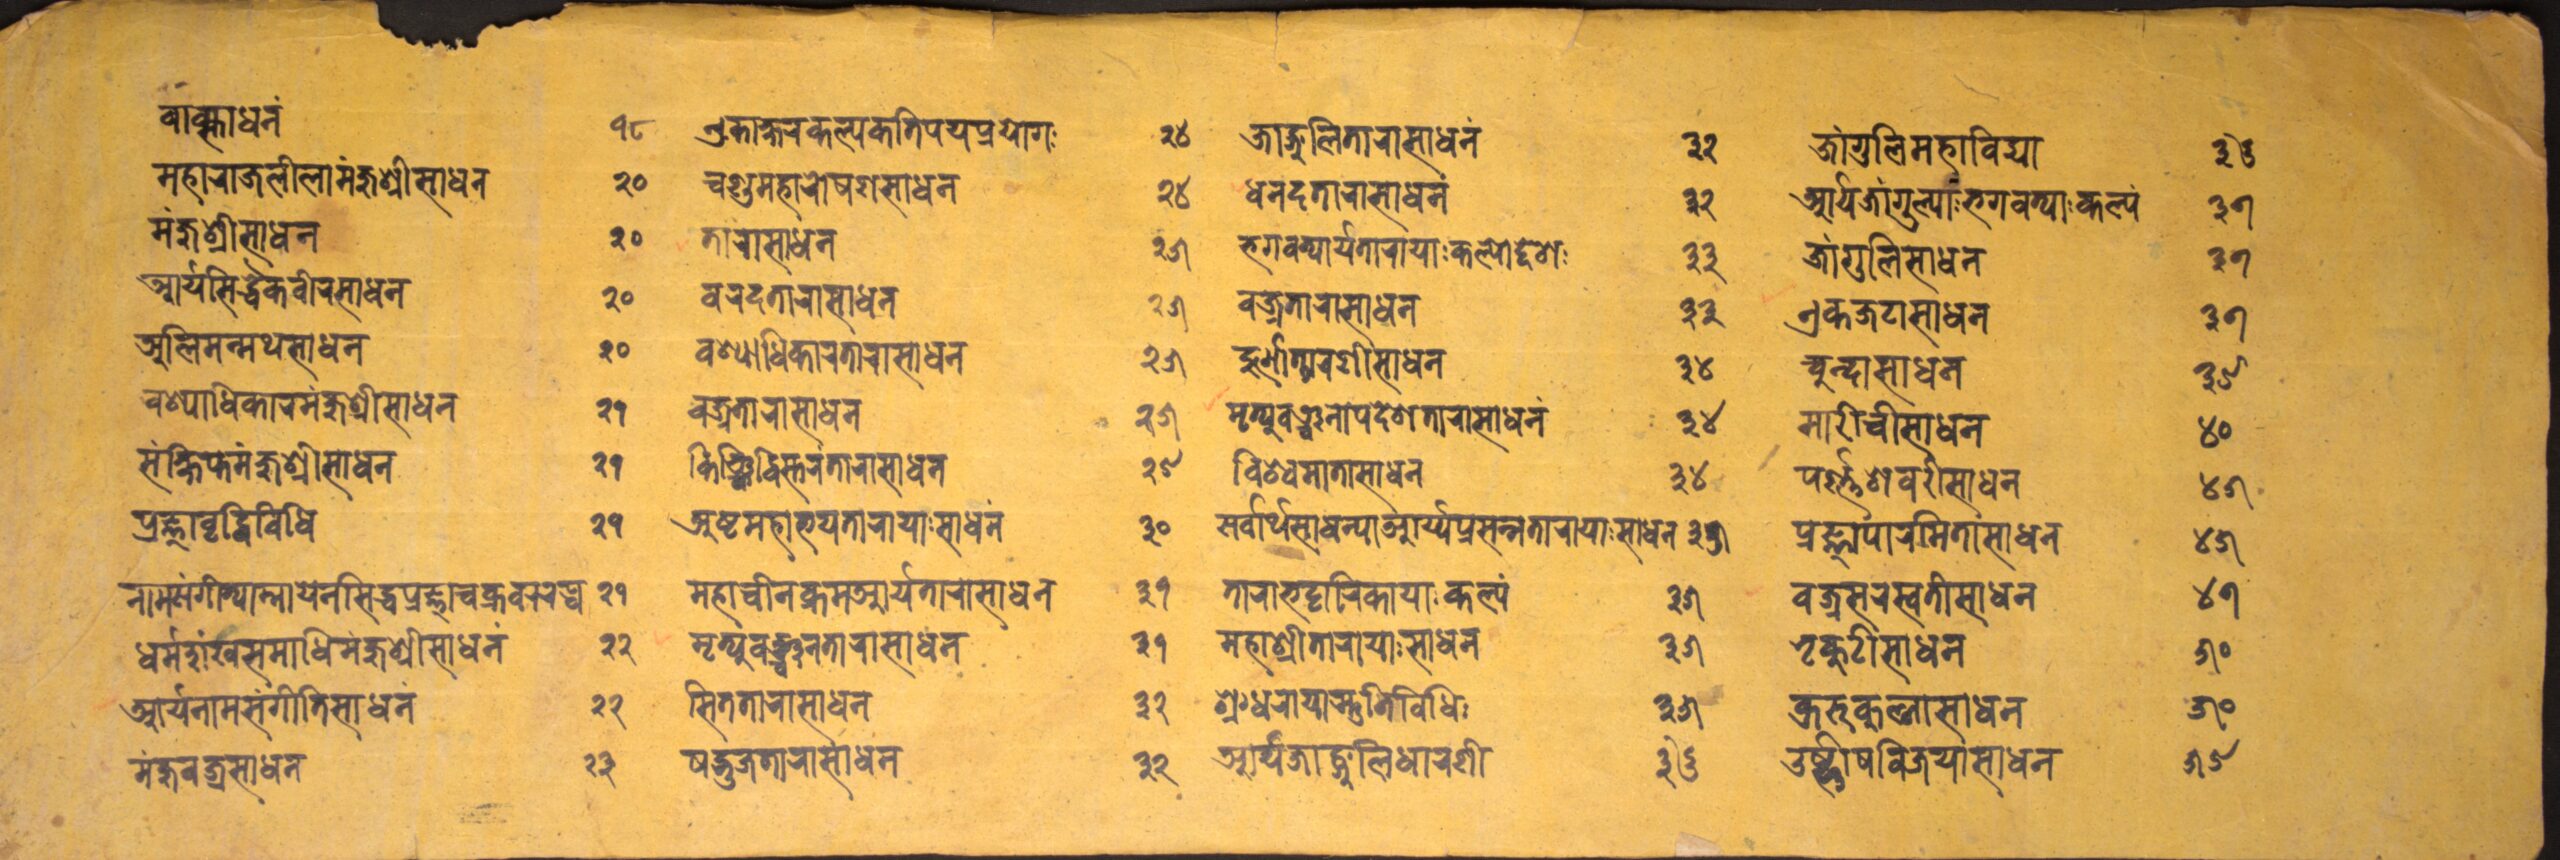 वाक्साधनं १८
महाराजलीलामंजुश्रीसाधन २०
मंजुश्रीसाधन २०
आर्यसिद्धैकवीरसाधन २०
अलिमन्मथसाधन २०
वश्याधिकारमंजुश्रीसाधन २१
संक्षिप्तमंजुश्रीसाधन २१
प्रज्ञावृद्धिविधि २१
नामसंगीत्याम्नायेनसिद्धप्रज्ञाचक्र २१
धर्मशंखसमाधिमंजुश्रीसाधनं २२
आर्यनामसंगीतिसाधनं २२
मंजुवज्रसाधन २३
एकाक्षरकल्पकतिपयप्रयोगः २४
चण्डमहारोषणसाधन २४
तारासाधन २७
वरदतारासाधन २७
वश्याधिकारतारासाधन २७
वज्रतारासाधन २७
किञ्चिद्विस्तरंतारासाधन २९
अष्टमहाभयतारायाःसाधनं ३०
महाचीनक्रमआर्यतारासाधन ३१
मृत्युवञ्चनतारासाधन ३१
सिततारासाधन ३२
षद्भुजतारासाधन ३२
जाङ्गुलितारासाधनं ३२
धनदतारासाधनं ३२
भगवत्यार्यतारायाःकल्पोद्देशः ३३
वज्रतारासाधन ३३
दुर्गोत्तारणीसाधन ३४
मृत्युवञ्चनोपदेशतारासाधनं ३४
विश्वमातासाधन ३४
सर्वार्थसाधन्याआर्य्यप्रसन्नतारायाःसाधन ३५
ताराभट्टारिकायाःकल्पं ३५
महाश्रीतारायाःसाधन ३५
श्रग्धरायास्तुतिविधिः ३५
आर्यजाङ्गुलिधारणी ३६
जांगुलिमहाविद्या ३६
आर्यजांगुल्याःभगवत्याःकल्पं ३७
जांगुलिसाधन ३७
एकजटासाधन ३७
चुन्दासाधन ३९
मारीचीसाधन ४०
पर्ण्णशवरीसाधन ४५
प्रज्ञापारमितासाधन ४५
वज्रसरस्वतीसाधन ४७
भृकुटीसाधन ५०
कुरुकुल्लासाधन ५०
उर्ष्णीषविजयासाधन ५९